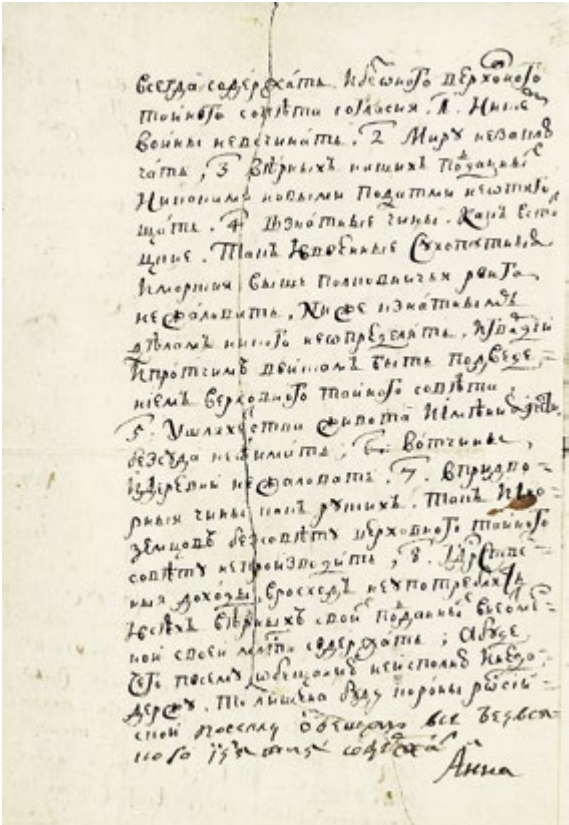 всегда содержать. И безоного верховного
тайного совѣта согласия. 1. Нискем
войны невсчинать. 2 Миру незаклю
чать, 3 Вѣрныхъ нашихъ подданны
Никакими новыми податми неотяго
щать. 4 Взнатные чины. Какъ Встa
цкие. Такъ Ивоенные Сухопутныя
Иморския выше полковничья ранга
нежаловать. Ниже кзнатнымъ
дѣламъ никого неопределять. Игвардиi
Ипротчимъ полкамъ быть подведе=
ниемъ верховного тайного совѣта,
5. Ушляхетства живота Iимѣния
безсуда неѿимать, 6. вотчины,
Идеревни нежаловать. 7. впридво=
рныя чины какъ рускихъ. Такъ Iино=
земцовъ безсовѣту верховного тайного
совѣту непроизводить, 8. Гдрствен=
ныя доходы вросходъ неупотреблять
Ивсѣхъ вѣрныхъ свои подданны
ной своей млсти содержать; Абуде
чего посему обещанию неисполню Инедо=
держу. То лишена буду короны россиi=
ской посему обещаю все безвся
кого содержать
Анна